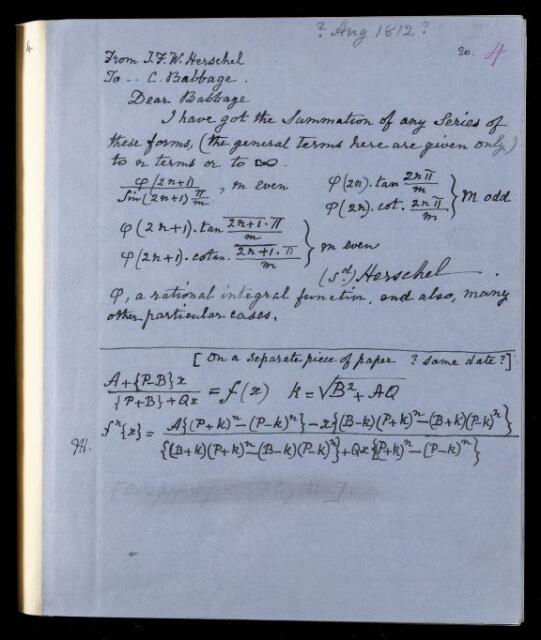 4
? Aug 1812?
20. 4
From J.F.W. Herschel
To .. C. Babbage.
Dear Babbage
I have got the Summation of any Series of
these forms, (the general terms here are given only)
to n terms or to ∞.
φ(2n+1) / Sin(2n+1) π/m , m even
φ(2n). tan 2nπ/m
φ(2n). cot. 2nπ/m } m odd
φ(2n+1). tan 2n+1.π/m
φ(2n+1). cotan. 2n+1.π/m } m even
(Sd.) Herschel.
φ, a rational integral function, and also, many
other particular cases.
[On a separate piece of paper ? same date?]
A+{P-B}x / {P+B}+Qx = f(x) k = √B²+AQ
fⁿ{x} = A{(P+k)ⁿ-(P-k)ⁿ}-x{(B-k)(P+k)ⁿ-(B+k)(P-k)ⁿ} / {(B+k)(P+k)ⁿ-(B-k)(P-k)ⁿ}+Qx{(P+k)ⁿ-(P-k)ⁿ}